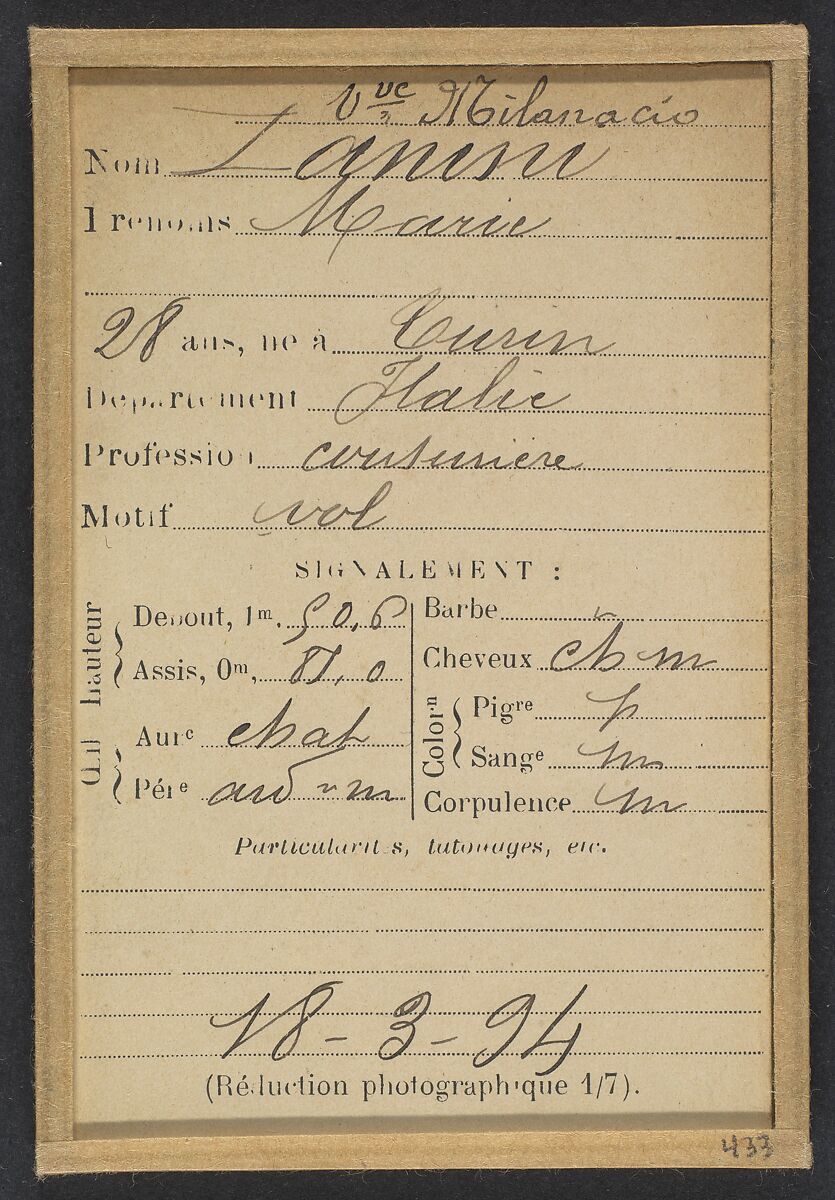 Vve Milanacio
Nom Zanini
Prénoms Marie
28 ans, né à Turin
Département Italie
Profession couturière
Motif vol
SIGNALEMENT :
Hauteur
Debout, 1m. 50,6
Assis, 0m, 81,0
Œil
Aure chat
Pére ard m
Barbe
Cheveux ch m
Colorn
Pigre p
Sange m
Corpulence m
Particularités, tatouages, etc.
18-3-94
(Réduction photographique 1/7).
433